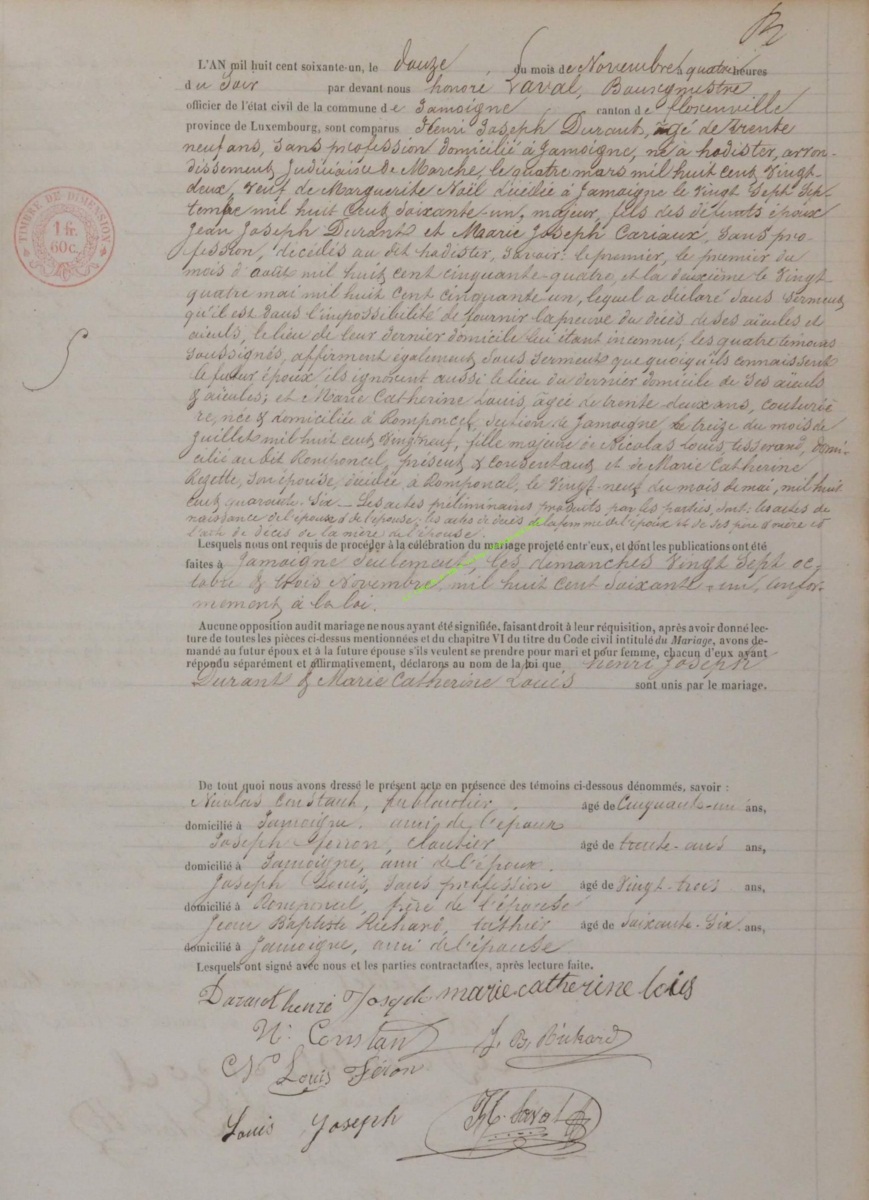 L'AN mil huit cent soixante-un, le douze du mois de Novembre à quatre heures
du Soir par devant nous honoré Laval, Bourgmestre
officier de l'état civil de la commune de Jamoigne canton de florenville
province de Luxembourg, sont comparus Henri Joseph Durant, âgé de trente
neuf ans, sans profession domicilié à Jamoigne, né à hodister, arron-
dissement Judiciaire de Marche, le quatre mars mil huit cent vingt-
deux, veuf de Marguerite Noël décédée à Jamoigne le vingt sept Sep-
tembre mil huit cent soixante-un, majeur, fils des défunts époux
Jean Joseph Durant et Marie Joseph Cariaux, sans pro-
fession, décédés au dit hodister, savoir: le premier, le premier du
mois d'août mil huit cent cinquante-quatre, et la deuxième le vingt-
quatre mai mil huit cent cinquante-un, lequel a déclaré sous serment
qu'il est dans l'impossibilité de fournir la preuve du décès de ses aïeules et
aïeuls, le lieu de leur dernier domicile lui étant inconnu; les quatre témoins
soussignés, affirment également sous serment que quoiqu'ils connaissent
le futur époux ils ignorent aussi le lieu du dernier domicile de ses aïeuls
& aïeules; et Marie Catherine Louis, âgée de trente-deux ans, couturiè
re, née & domiciliée à Romponcel, section de Jamoigne, le treize du mois de
Juillet mil huit cent vingt neuf, fille majeure de Nicolas Louis, tisserand, domi-
cilié au dit Romponcel, présent & consentant et de Marie Catherine
son épouse, décédée à Romponcel, le vingt-neuf du mois de mai, mil huit
cent quarante-six_ Les actes préliminaires produits par les parties, sont: les actes de
naissance de l'époux & de l'épouse; les actes de décès de la femme de l'époux et de ses père & mère et
l'acte de décès de la mère de l'épouse.
Lesquels nous ont requis de procéder à la célébration du mariage projeté entr'eux, et dont les publications ont été
faites à Jamoigne seulement, les dimanches vingt sept oc-
tobre & trois Novembre, mil huit cent soixante-un, confor-
mément à la loi.
Aucune opposition audit mariage ne nous ayant été signifiée, faisant droit à leur réquisition, après avoir donné lec-
ture de toutes les pièces ci-dessus mentionnées et du chapitre VI du titre du Code civil intitulé du Mariage, avons de-
mandé au futur époux et à la future épouse s'ils veulent se prendre pour mari et pour femme, chacun d'eux ayant
répondu séparément et affirmativement, déclarons au nom de la loi que henri Joseph
Durant & Marie Catherine Louis sont unis par le mariage.
De tout quoi nous avons dressé le présent acte en présence des témoins ci-dessous dénommés, savoir :
Nicolas Constant, ferblantier, âgé de Cinquante-un ans,
domicilié à Jamoigne, ami de l'époux
Joseph cloutier âgé de trente-ans ans,
domicilié à Jamoigne, ami de l'époux.
Joseph Louis, sans profession âgé de vingt-trois ans,
domicilié à Romponcel, frère de l'épouse
Jean Baptiste Richard, âgé de soixante-six ans,
domicilié à Jamoigne, ami de l'épouse
Lesquels ont signé avec nous et les parties contractantes, après lecture faite.
Durant henri Joseph marie catherine
N. Constant J. B. Richard
N Louis
Louis Joseph H. Laval
TIMBRE DE DIMENSION
1 fr.
60 c.